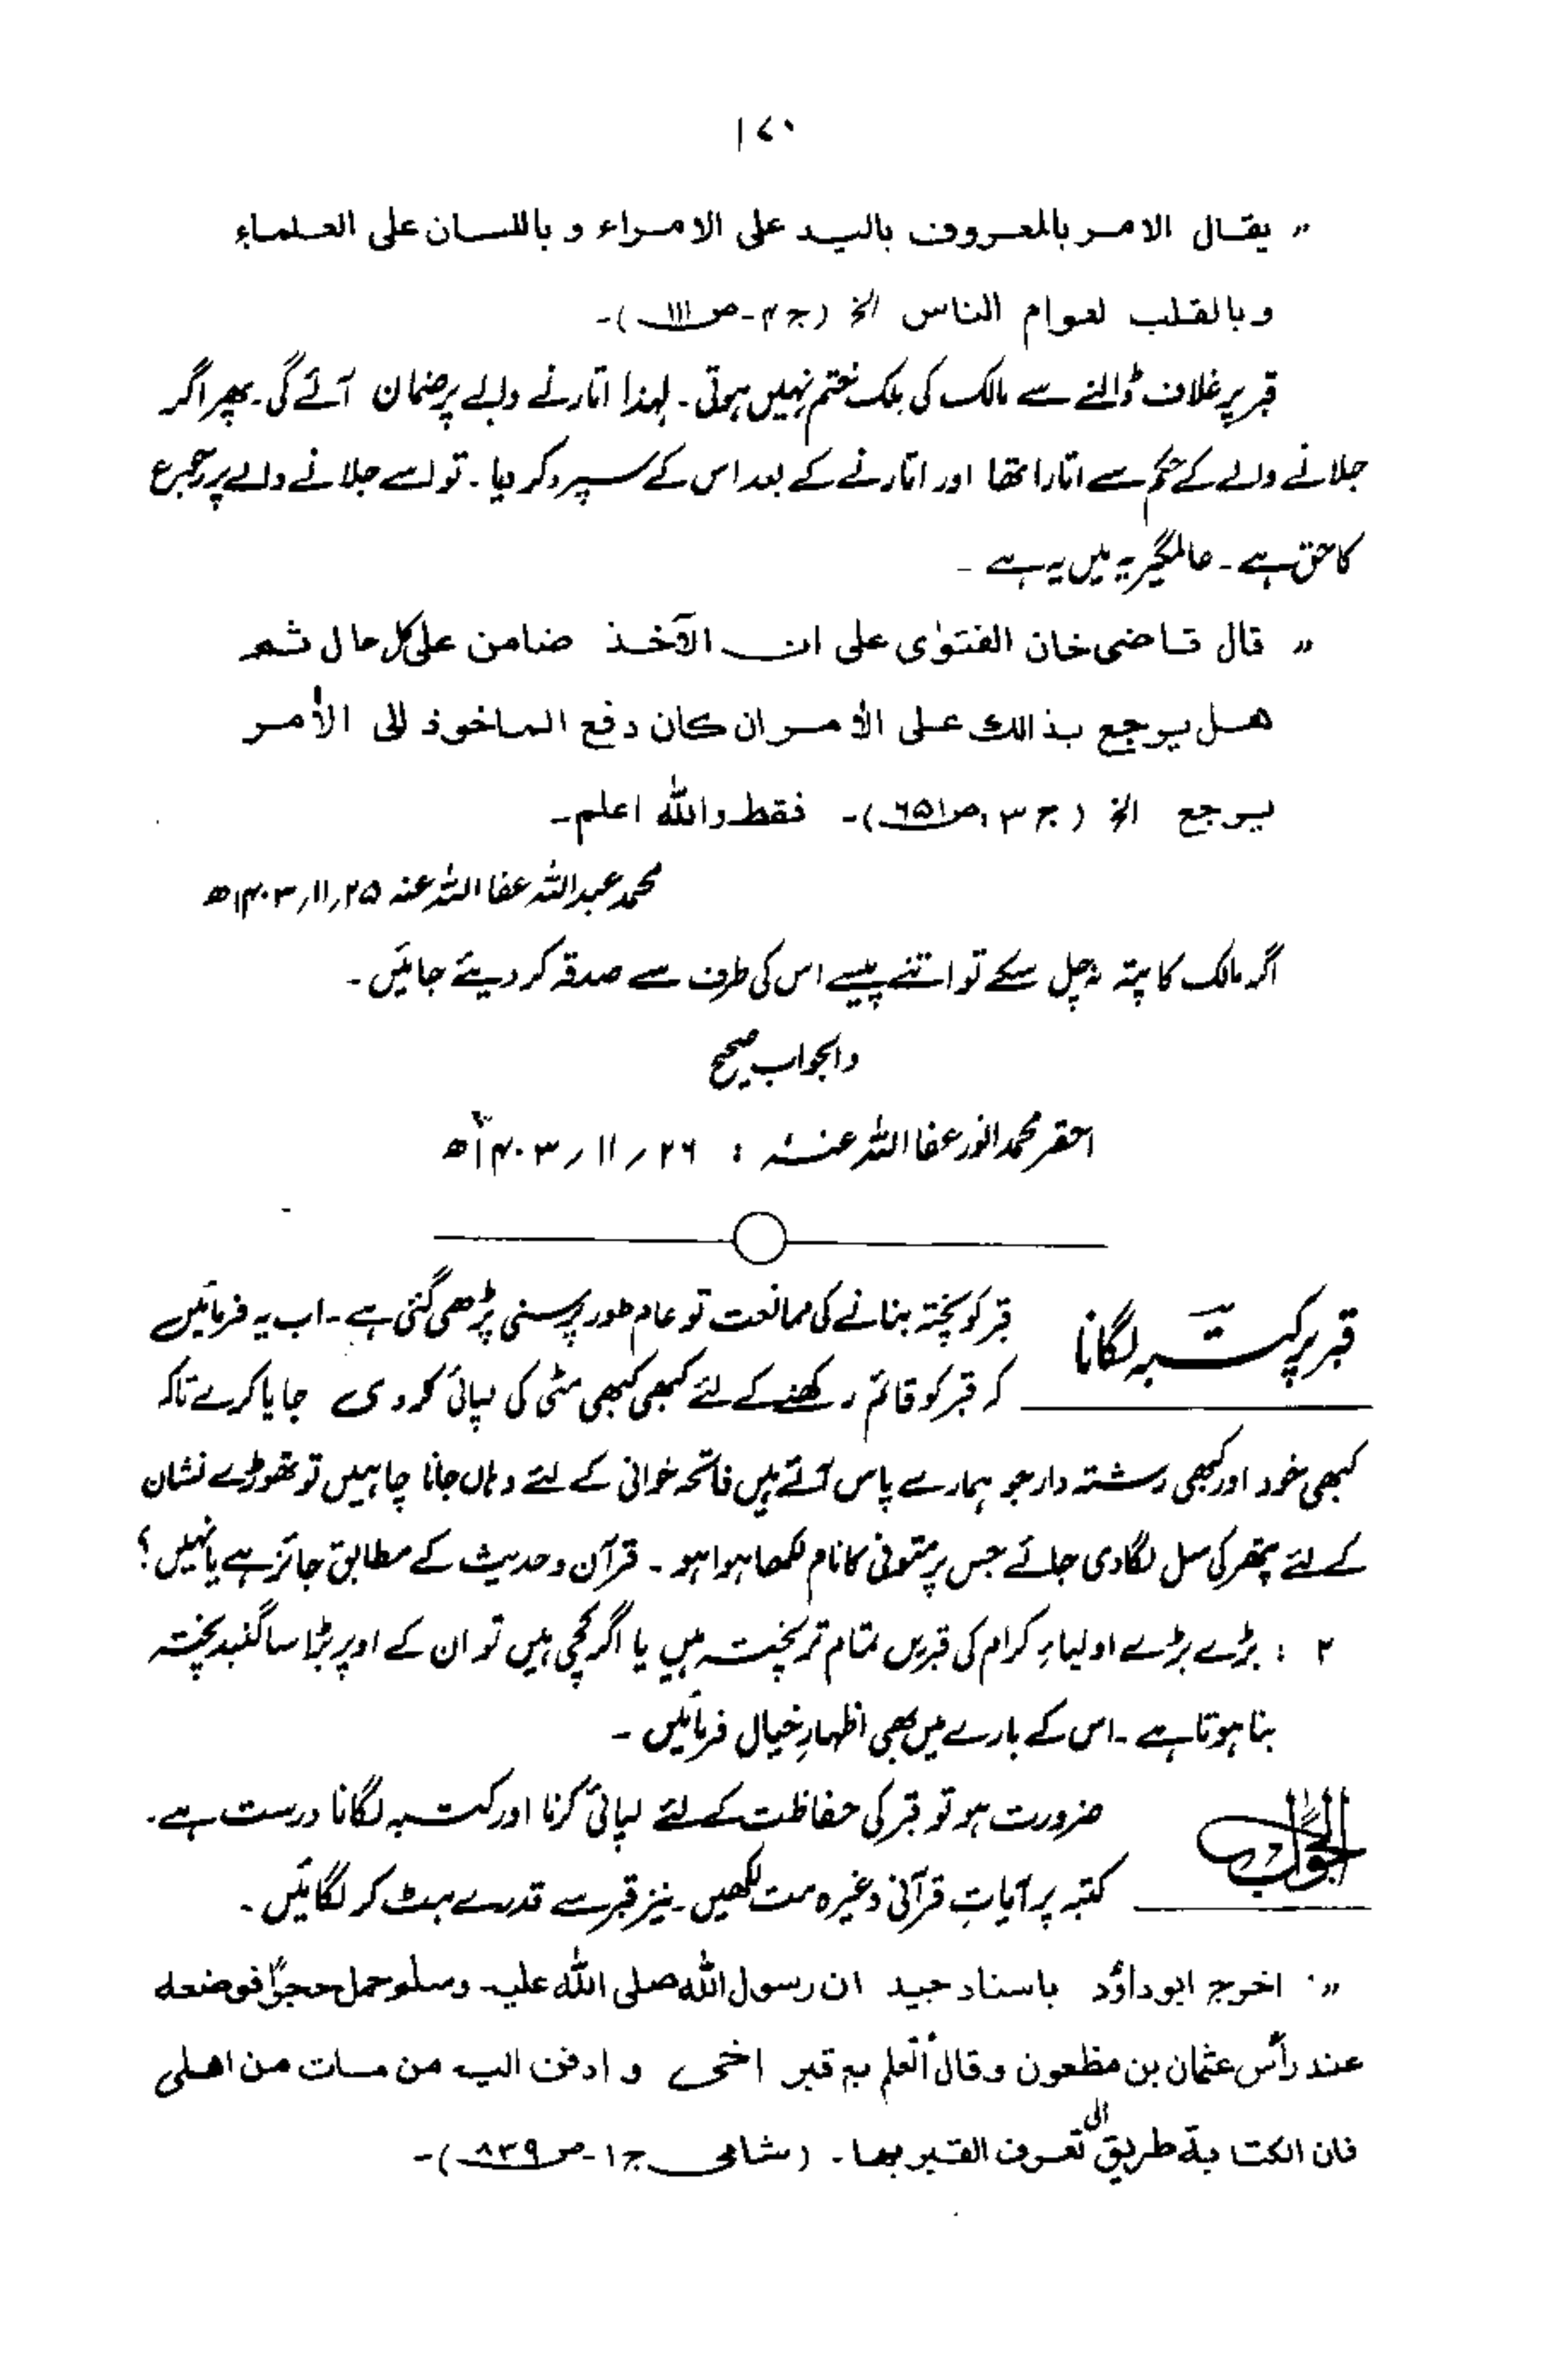 ۱۷۰
” یقال الامر بالمعروف بالید علی الامراء و باللسان علی العلماء
وبالقلب لعوام الناس الخ (ج ۴ - ص ۱۱۱)-
قبر پر غلاف ڈالنے سے مالک کی ملک ختم نہیں ہوتی۔ لہذا اتارنے والے پر ضمان آئے گی۔ پھر اگر
جلانے والے کے حکم سے اتارا تھا اور اتارنے کے بعد اس کے سپرد کر دیا۔ تو اسے جلانے والے پر رجوع
کا حق ہے۔ عالمگیریہ میں یہ ہے ـ
” قال قاضی خان الفتوٰی علی ان الآخذ ضامن علی کل حال ثم
هل یرجع بذالك علی الأمر ان كان دفع الماخوذ الی الأمر
یرجع الخ (ج ۳، ص ۶۵۱)۔ فقط واللہ اعلم۔
محمد عبداللہ عفا اللہ عنہ ۲۵؍۱۱؍۱۴۰۳ھ
اگر مالک کا پتہ نہ چل سکے تو اتنے پیسے اس کی طرف سے صدقہ کر دیئے جائیں۔
والجواب صحیح
احقر محمد انور عفا اللہ عنہ : ۲۶؍۱۱؍۱۴۰۳ھ
قبر پر کتبہ لگانا
قبر کو پختہ بنانے کی ممانعت تو عام طور پر سنی پڑھی گئی ہے۔ اب یہ فرمائیں
کہ قبر کو قائم رکھنے کے لئے کبھی کبھی مٹی کی لپائی کر دی جایا کرے تاکہ
کبھی خود اور کبھی رشتہ دار جو ہمارے پاس آتے ہیں فاتحہ خوانی کے لئے وہاں جانا چاہیں تو تھوڑے نشان
کے لئے پتھر کی سل لگا دی جائے جس پر متوفی کا نام لکھا ہوا ہو۔ قرآن و حدیث کے مطابق جائز ہے یا نہیں؟
۲ : بڑے بڑے اولیاءِ کرام کی قبریں تمام تر پختہ ہیں یا اگر کچی ہیں تو ان کے اوپر بڑا سا گنبد پختہ
بنا ہوتا ہے۔ اس کے بارے میں بھی اظہارِ خیال فرمائیں۔
الجواب
ضرورت ہو تو قبر کی حفاظت کے لئے لپائی کرنا اور کتبہ لگانا درست ہے۔
کتبہ پر آیاتِ قرآنی وغیرہ مت لکھیں۔ نیز قبر سے قدرے ہٹ کر لگائیں۔
” اخرج ابوداؤد باسناد جید ان رسول اللہ صلی اللہ علیہ وسلم حمل حجرًا فوضعہ
عند رأس عثمان بن مظعون وقال أتعلم بہ قبر اخی و ادفن الیہ من مات من اھلی
فان الکتابة طریق الی تعرف القبر بھا۔ (شامی ج ۱ - ص ۸۳۹)-